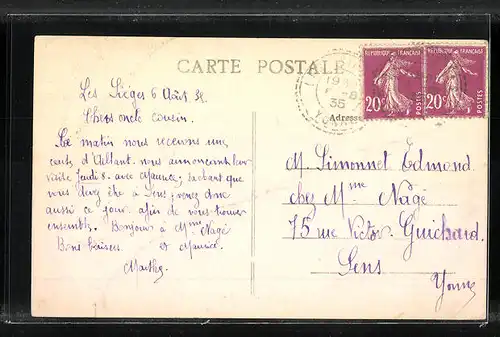 CARTE POSTALE
REPUBLIQUE FRANÇAISE
20c POSTES
REPUBLIQUE FRANÇAISE
20c POSTES
19
8
35
YONNE
Adresse
Les Sièges 6 Août 35
Chers oncle cousin.
Ce matin nous recevons une
carte d' nous annonçant leur
visite Jeudi 8. avec Maurice, sachant que
vous devez être à Sens, venez donc
aussi ce jour afin de vous trouver
ensemble. Bonjour à Mme Nagé
Bons baisers et Maurice.
Marthe
M. Simonnet Edmond
chez Mme Nagé
75 rue Victor Guichard
Sens
Yonne